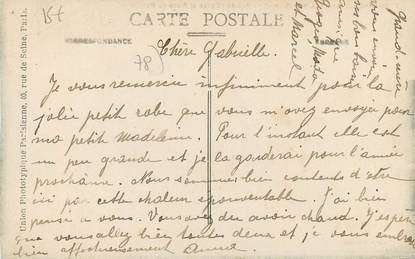 15t
CARTE POSTALE
CORRESPONDANCE
78)
Chère Gabrielle.
Je vous remercie infiniment pour la
jolie petit robe que vous m'avez envoyée pour
ma petit Madeleine. Pour l'instant elle est
un peu grande et je la garderai pour l'année
prochaine. Nous sommes bien contents d'etre
ici par cette chaleur epouventable. J'ai bien
pensé a vous. Vous avez du avoir chaud. J'espère
que vous allez bien toutes deux et je vous embrasse
bien affectueusement
Grand-mère
vous envoie
ses bons baisers
et Marcel
Union Phototypique Parisienne, 40, rue de Seine, Paris.